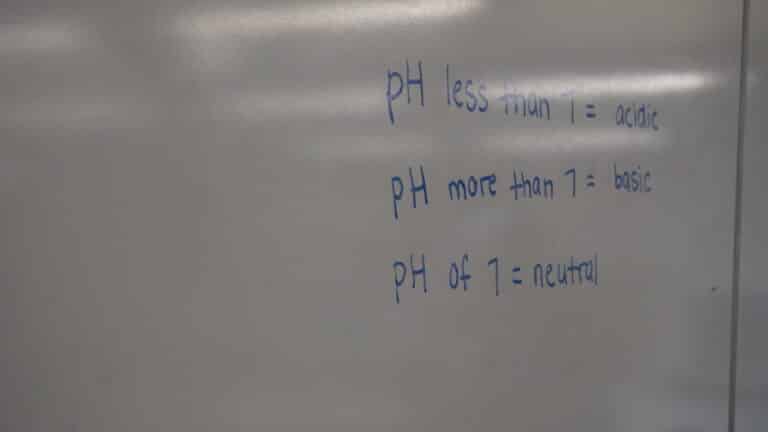 pH less than 7 = acidic
pH more than 7 = basic
pH of 7 = neutral